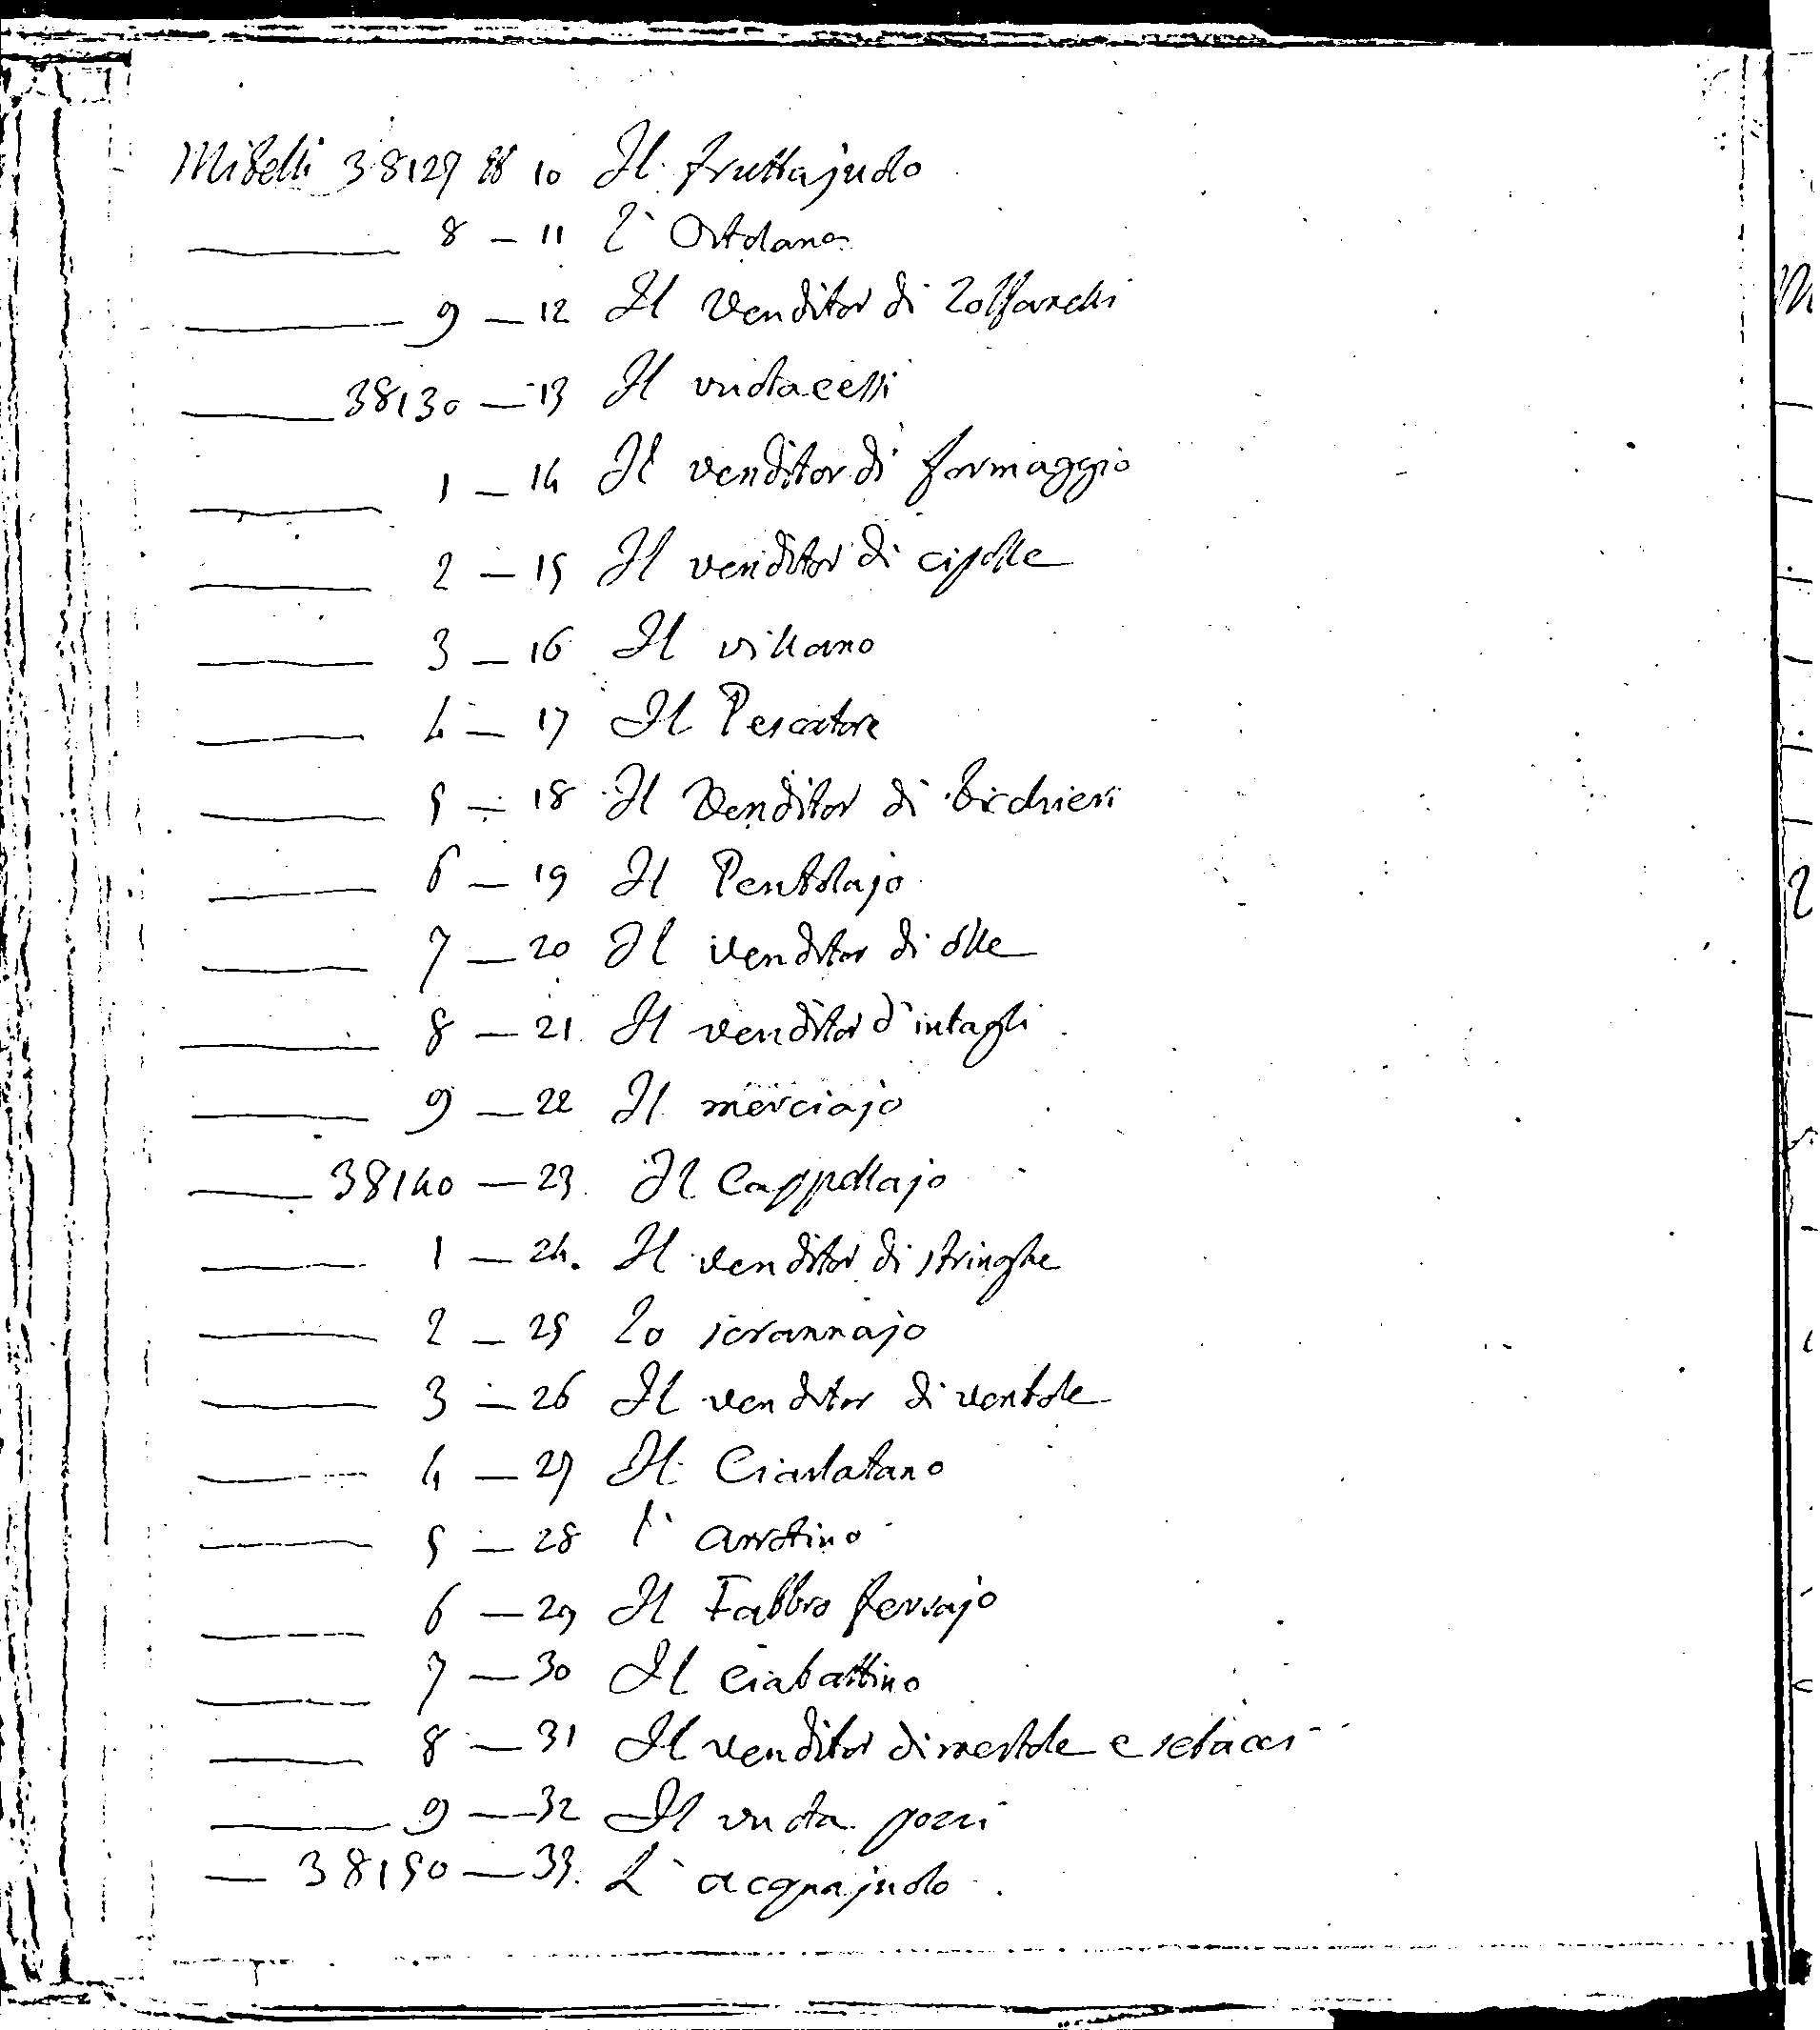 Mitelli 38127 10 Il fruttajuolo
8 – 11 l'Ortolano
9 – 12 Il Venditor di Zolfanelli
38130 – 13 Il vuotacessi
1 – 14 Il venditor di formaggio
2 – 15 Il venditor di cipolle
3 – 16 Il villano
4 – 17 Il Pescatore
5 – 18 Il Venditor di bicchieri
6 – 19 Il Pentolajo
7 – 20 Il venditor di olle
8 – 21. Il venditor d'intagli
9 – 22 Il merciajo
38140 – 23. Il Cappellajo
1 – 24. Il venditor di stringhe
2 – 25 Lo scrannajo
3 – 26 Il venditor di ventole
4 – 27 Il Ciarlatano
5 – 28 l'arrotino
6 – 29 Il Fabbro ferrajo
7 – 30 Il Ciabattino
8 – 31 Il venditor di mestole e setacci
9 – 32 Il vuota pozzi
– 38150 – 33. L'acquajuolo.